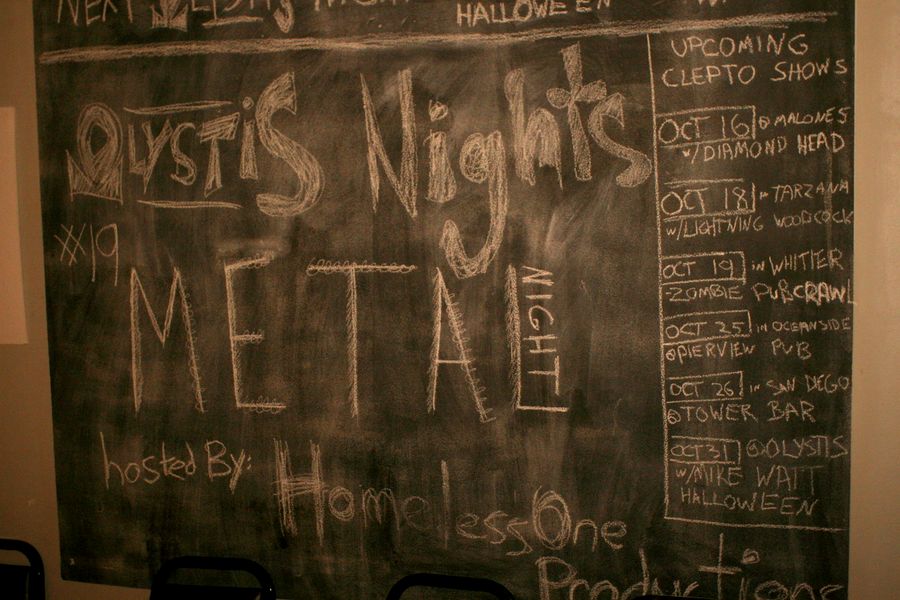 NEXT OLYSTIS NIGHT
HALLOWEEN
OLYSTiS Nights
#19
METAL
NIGHT
hosted By:
HomelessOne
Productions
UPCOMING
CLEPTO SHOWS
OCT 16 @MALONES
w/DIAMOND HEAD
OCT 18 in TARZANA
w/LIGHTNING WOODCOCK
OCT 19 in WHITIER
ZOMBIE PUBCRAWL
OCT 25 in OCEANSIDE
@PIERVIEW PUB
OCT 26 in SAN DEGO
@TOWER BAR
OCT31 @OLYSTIS
w/MIKE WATT
HALLOWEEN